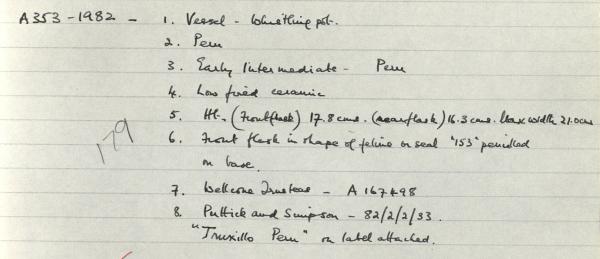 A353-1982 - 1. Vessel - Whistling pot.
2. Peru
3. Early Intermediate - Peru
4. Low fired ceramic
5. Ht. (Frontflask) 17.8 cms. (rearflask) 16.3 cms. Max width 21.0cms
179
6. Front flask in shape of feline or seal "153" pencilled
on base.
7. Wellcome Trustees - A 167498
8. Puttick and Simpson - 82/2/2/33.
"Truxillo Peru" on label attached.